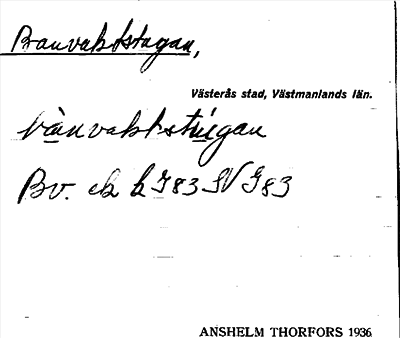 Banvaktstugan,
Västerås stad, Västmanlands län.
bànvaktstùgan
Bv. ek k J83 SV J83
ANSHELM THORFORS 1936